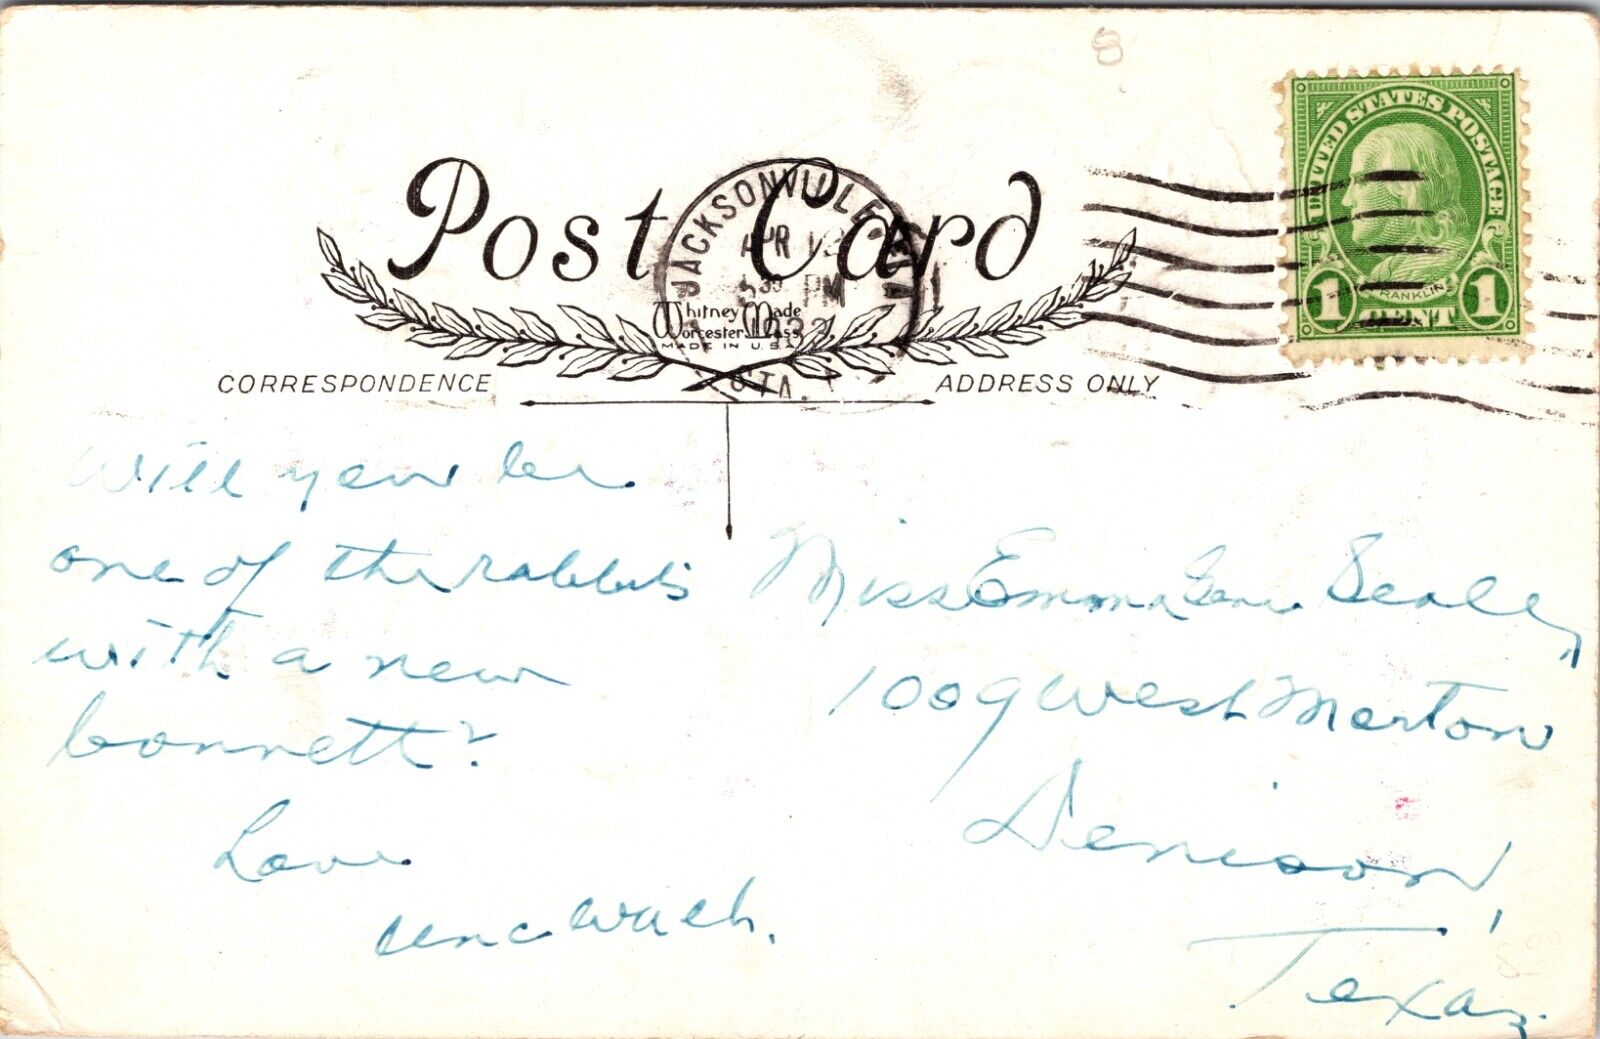 UNITED STATES POSTAGE
FRANKLIN
1 CENT 1
JACKSONVILLE. FLA
APR
PM
STA.
Post Card
Whitney Made
Worcester Mass
MADE IN U.S.A.
CORRESPONDENCE
ADDRESS ONLY
Will you be
one of the rabbits
with a new
bonnett?
Love
unc
Miss Emma Gene
1009 West Morton
Denison,
Texas.